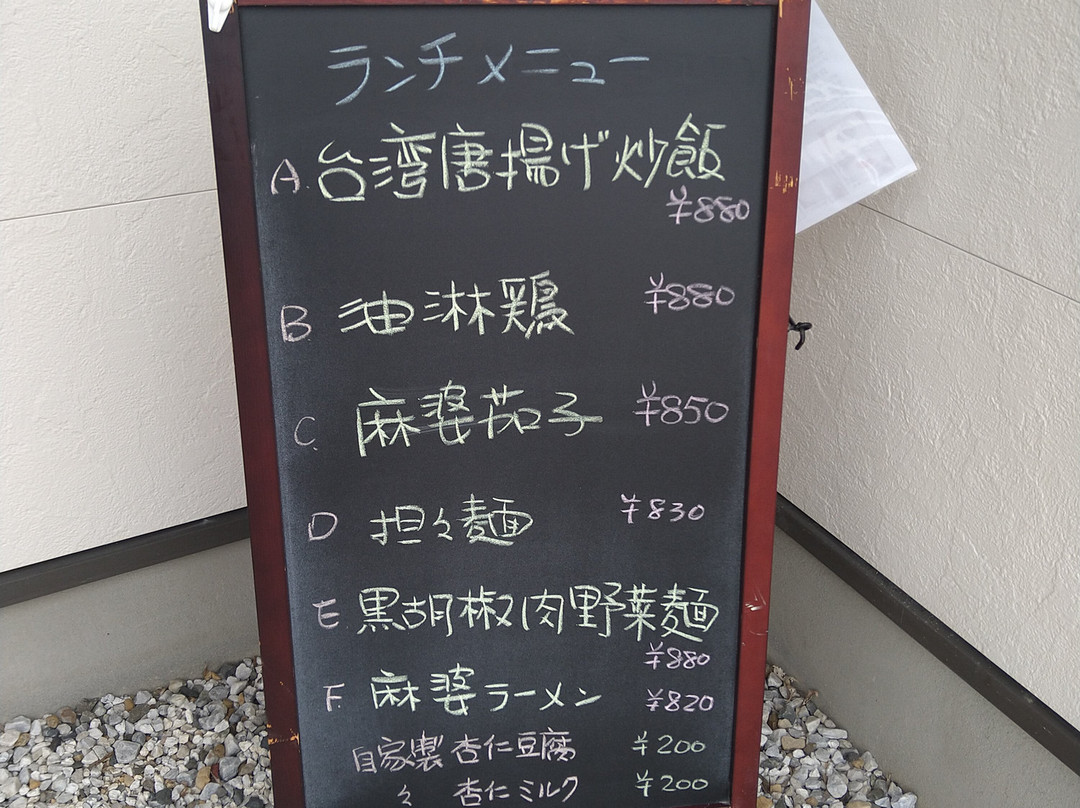 ランチメニュー
A. 台湾唐揚げ炒飯
¥880
B 油淋鶏 ¥880
C. 麻婆茄子 ¥850
D 担々麺 ¥830
E 黒胡椒肉野菜麺
¥880
F. 麻婆ラーメン ¥820
自家製 杏仁豆腐 ¥200
々 杏仁ミルク ¥200